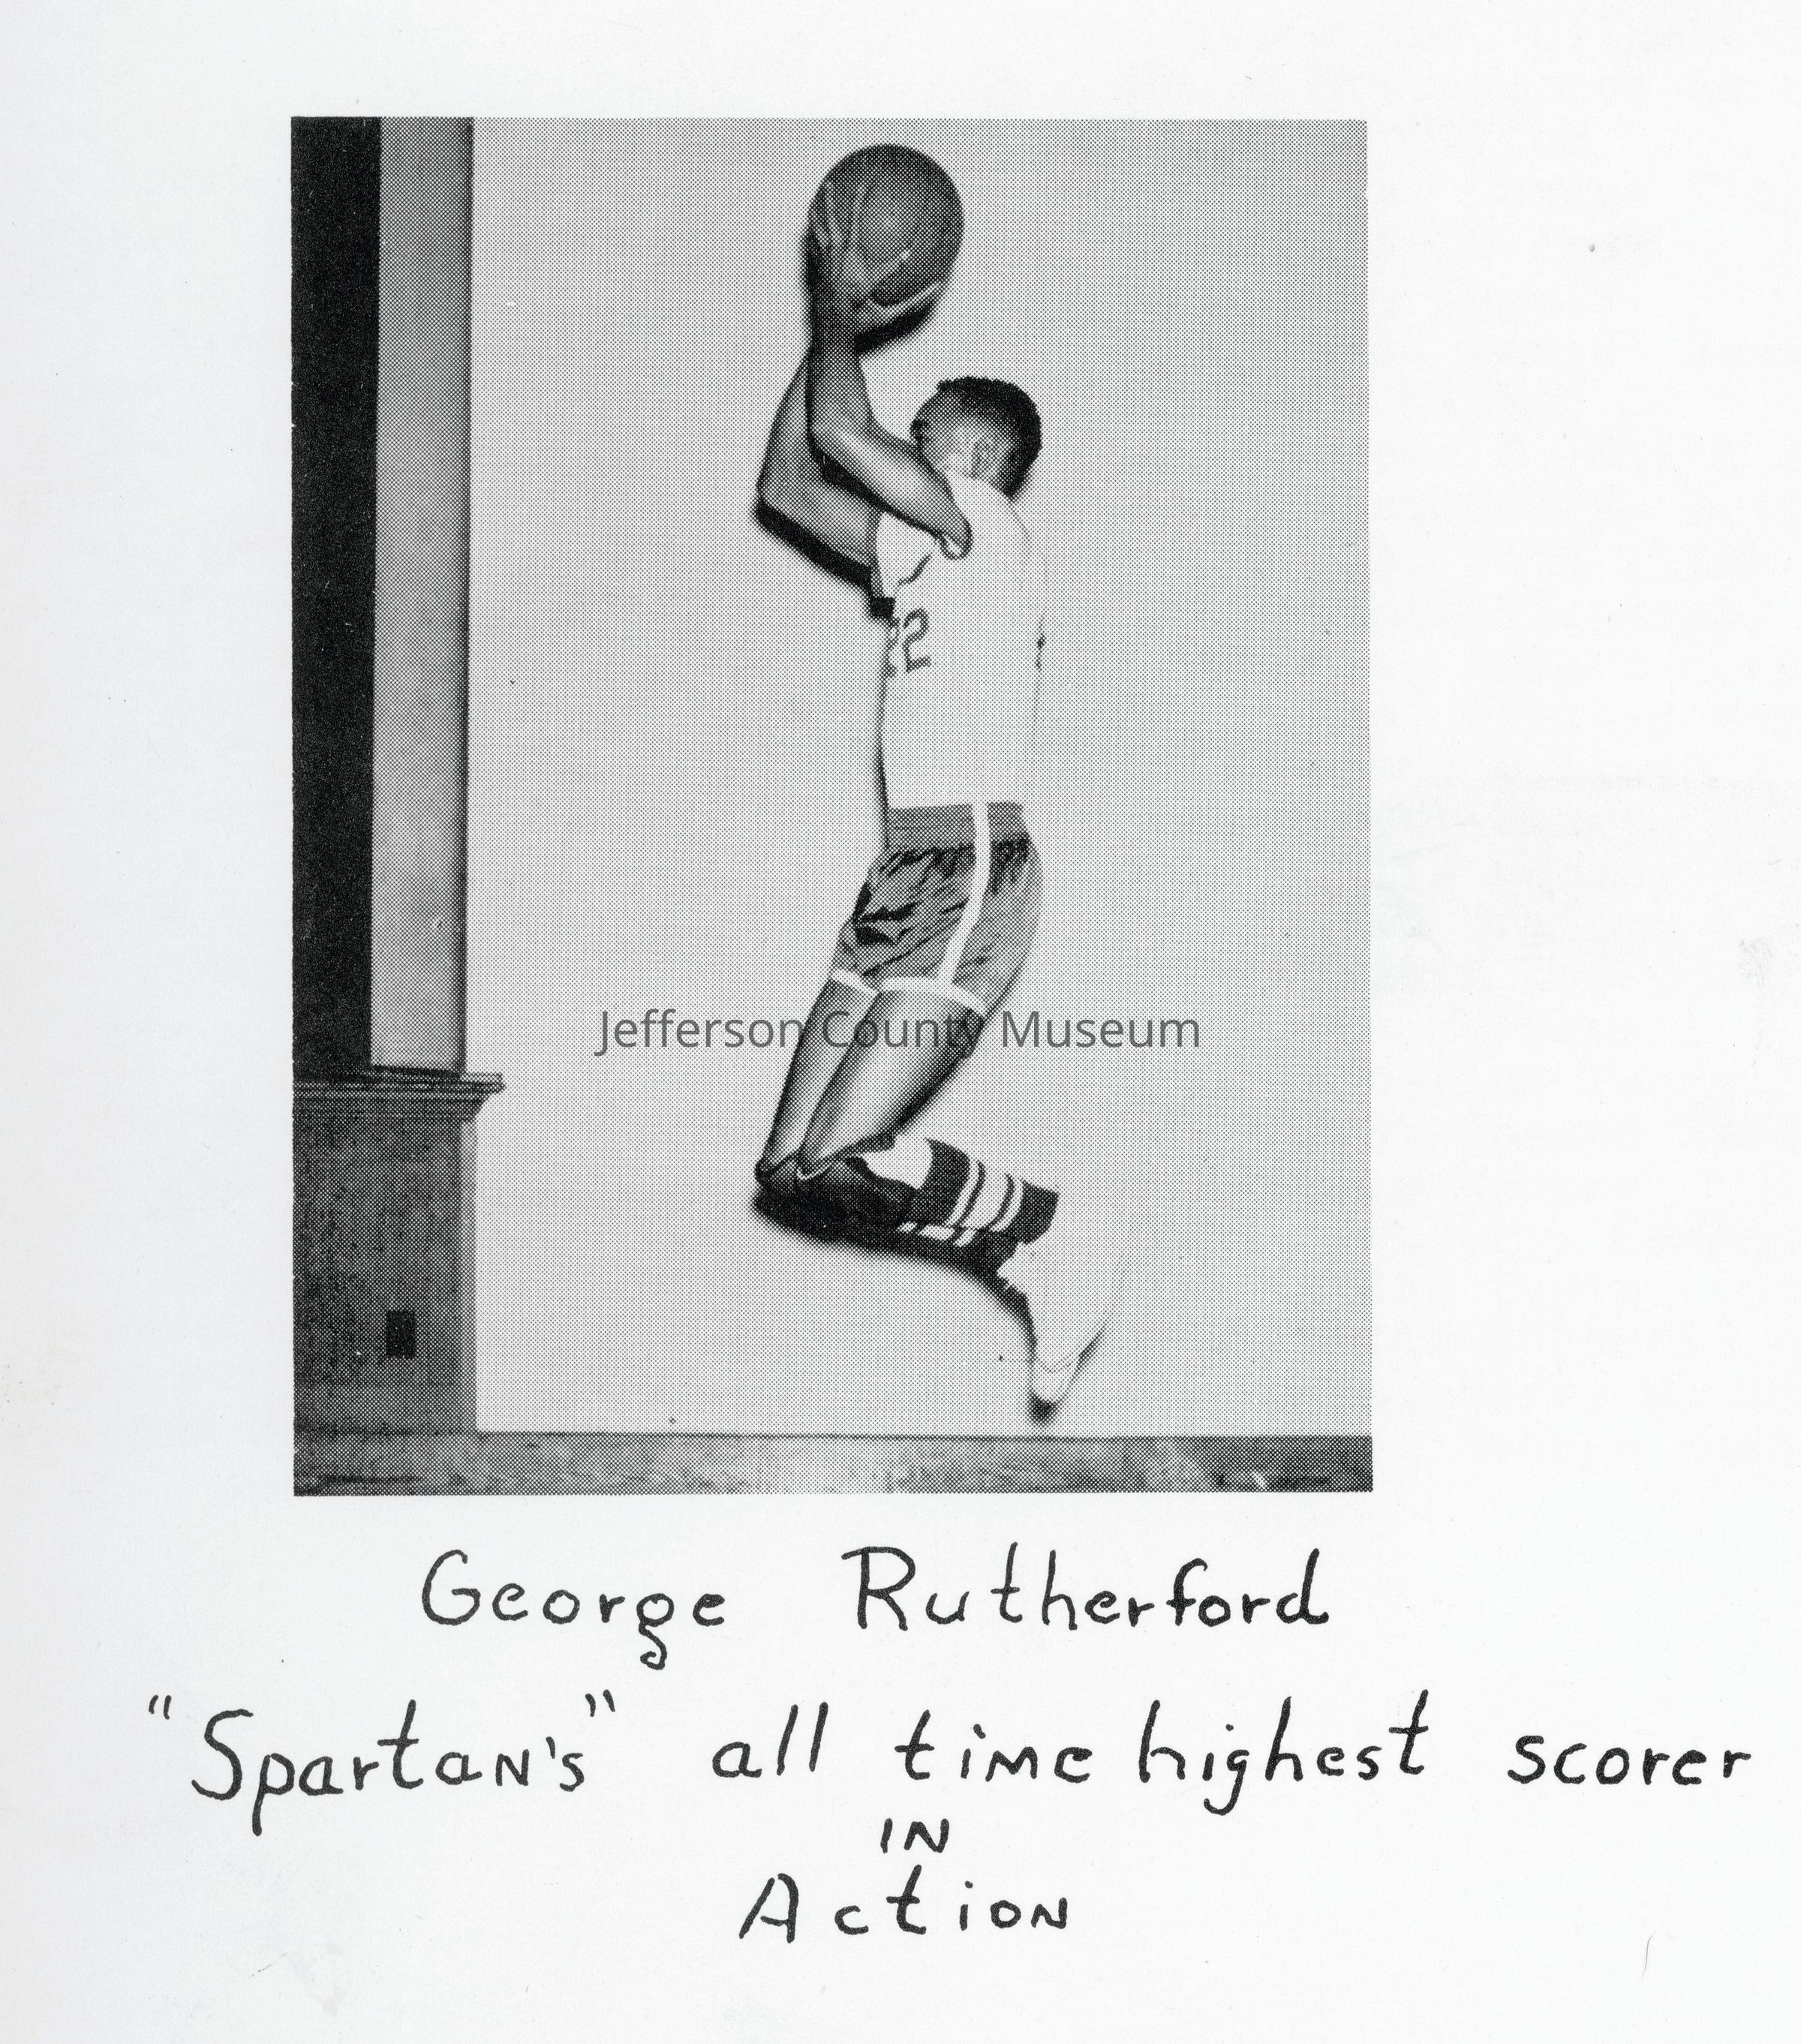 22
Jefferson County Museum
George Rutherford
"Spartan's" all time highest scorer
IN
Action